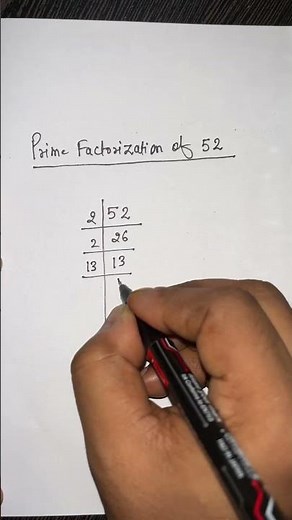 Prime Factorization of 52
2 52
2 26
13 13